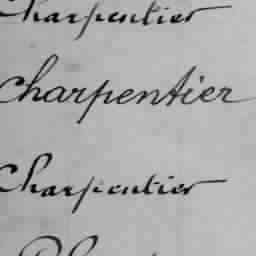 Charpentier
Charpentier
Charpentier